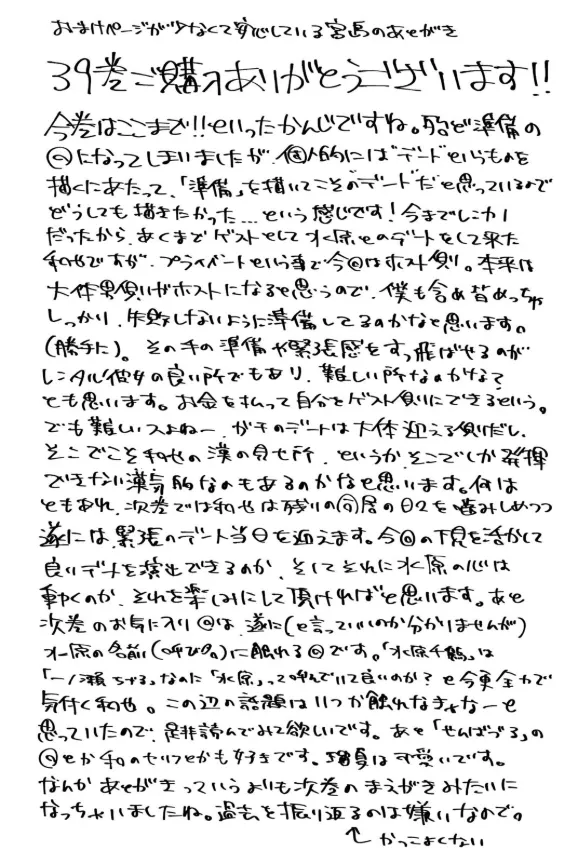 おまけページが少なくて安心している宮島のあとがき
39巻ご購入ありがとうございます!!
今巻はここまで!!といったかんじですね。殆ど準備の
回になってしまいましたが、個人的には"デート"というものを
描くにあたって、「準備」を描いてこその"デート"だと思っているので
どうしても描きたかった…という感じです!今までレンカノ
だったから、あくまでゲストとして水原とのデートをして来た
和也ですが、プライベートという事で今回はホスト側。本来は
大体男側がホストになると思うので、僕も含め皆めっちゃ
しっかり、失敗しないように準備してるのかなと思います。
(勝手に)。その手の準備や緊張感をすっ飛ばせるのが
レンタル彼女の良い所でもあり、難しい所なのかな?
とも思います。お金を払って自分をゲスト側にできるという。
でも難しいっよねー、ガチのデートは大体迎える側だし、
そこでこそ和也の漢の見せ所、というか、そこでしか発揮
できない漢気的なのもあるのかなと思います。何は
ともあれ、次巻では和也は残りの同居の日々を噛みしめつつ
遂には緊張のデート当日を迎えます。今回の下見を活かして
良いデートを演出できるのか、そしてそれに水原の心は
動くのか、それを楽しみにして頂ければと思います。あと
次巻のお気に入り回は、遂に(と言っていいのか分かりませんが)
水原の名前(呼び名)に触れる回です。「水原千鶴」は
「一ノ瀬ちづる」なのに「水原」って呼んでいて良いのか?と今更全力で
気付く和也。この辺の話題はいつか触れなきゃなーと
思っていたので、是非読んでみて欲しいです。あと「せんばづる」の
回とか和のセリフとかも好きです。瑠夏は可愛いです。
なんかあとがきっていうよりも次巻のまえがきみたいに
なっちゃいましたね。過去を振り返るのは嫌いなので。
↑かっこよくない